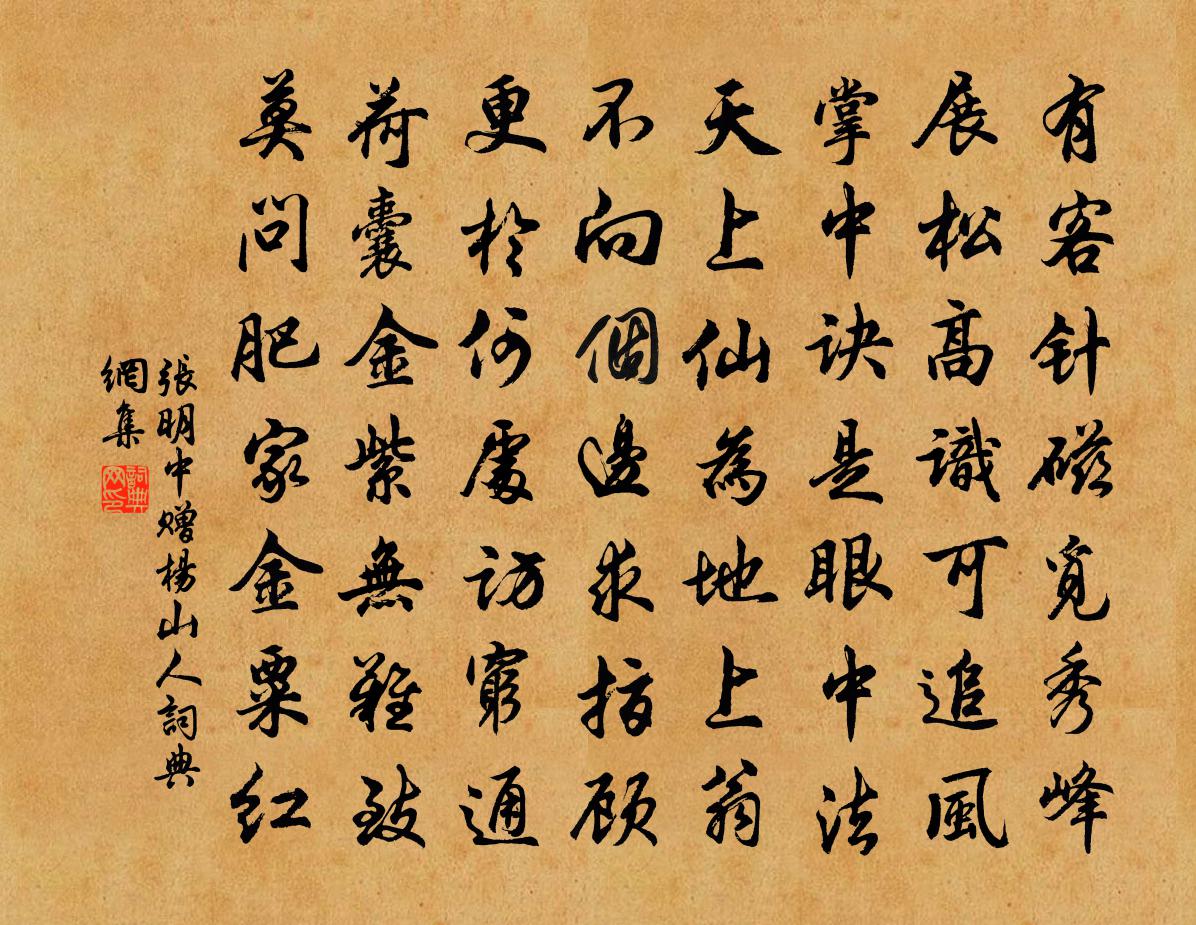 有客针磁覓秀峰
展松高識可追風
掌中訣是眼中法
天上仙為地上翁
不向個邊求指顾
更於何處訪窮通
荷囊金紫無難致
莫问肥家金粟红
張明中赠楊山人詞典
網集
詞典
网印